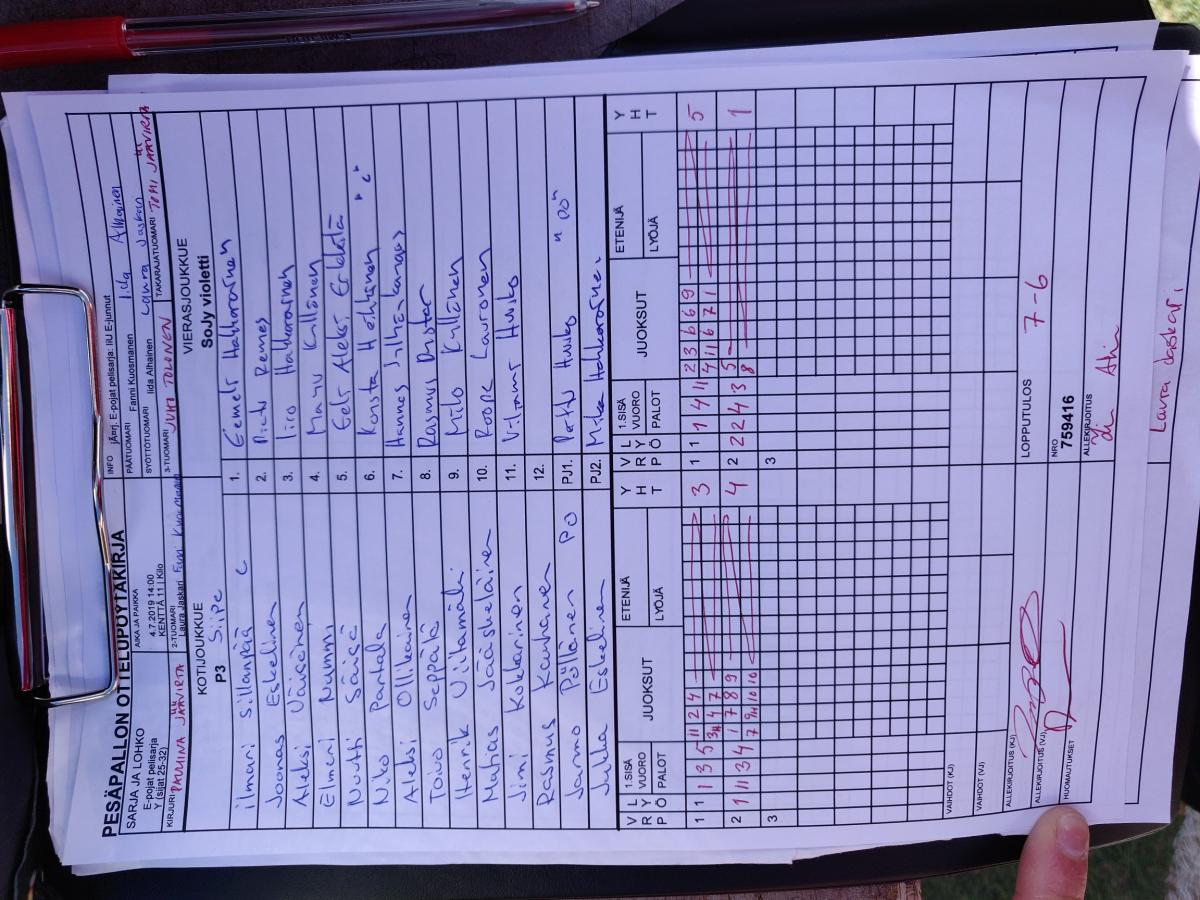 PESÄPALLON OTTELUPÖYTÄKIRJA
SARJA JA LOHKO
E-pojat pelisarja
Y (sijat 25-32)
AIKA JA PAIKKA
4.7.2019 14:00
KENTTÄ 11 | Kilo
INFO jÃ¤rj. E-pojat pelisarja: IiU E-junnut
PÄÄTUOMARI Fanni Kuosmanen Iida Alhainen
SYÖTTÖTUOMARI Iida Alhainen Laura Jaskari
KIRJURI PAULIINA JÄÄVIRTA
2-TUOMARI Laura Jaskari Fanni Kuosmanen
3-TUOMARI JUHO TOLONEN
TAKARAJATUOMARI TOMI JÄÄVIRTA
KOTIJOUKKUE
P3 Siipe
VIERASJOUKKUE
SoJy violetti
Ilmari Sillanpää C 1. Eemeli Hakkarainen
Joonas Eskelinen 2. Remes
Aleksi Väisänen 3. Iiro Hakkarainen
Elmeri Nummi 4. Manu Kyllönen
Nuutti Säisä 5. Eeli Aleksi Erkkilä
Niko Partala 6. Konsta Heikkinen "C"
Aleksi Ollikainen 7. Hannes Juthinkangas
Toivo Seppälä 8. Rasmus
Henrik Viitamäki 9. Milo Kyllönen
Matias Jääskeläinen 10. Roope Lauronen
Jimi Kokkarinen 11. Vilami Husko
Rasmus Kauhanen 12.
Jarmo Pöllänen PO PJ1. Husko "PO"
Jukka Eskelinen PJ2. Mika Hakkarainen
VRP LYÖ 1.SISÄ VUORO PALOT JUOKSUT ETENIJÄ LYÖJÄ YHT VRP LYÖ 1.SISÄ VUORO PALOT JUOKSUT ETENIJÄ LYÖJÄ YHT
1 1 1 3 5 11 2 4 3 1 1 1 4 11 2 3 6 6 9 5
3 4 7 4 11 6 7 1
2 1 11 3 4 1 7 8 9 4 2 2 2 4 3 5 1
7 9 10 10 8
3 3
VAIHDOT (KJ)
VAIHDOT (VJ)
ALLEKIRJOITUS (KJ)
LOPPUTULOS 7-6
ALLEKIRJOITUS (VJ)
NRO
759416
HUOMAUTUKSET
ALLEKIRJOITUS
Laura Jaskari